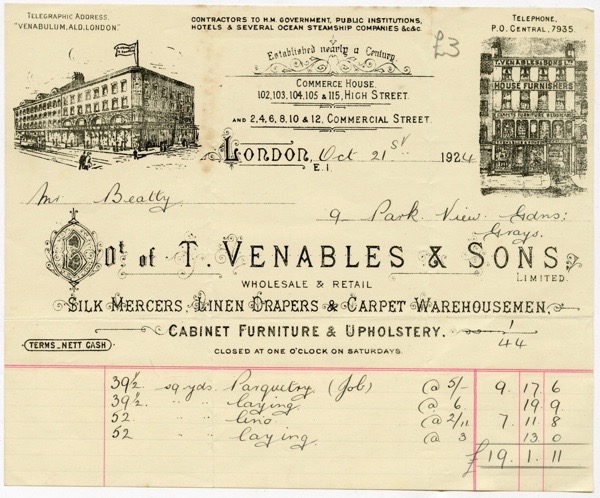 TELEGRAPHIC ADDRESS,
"VENABULUM, ALD, LONDON."
CONTRACTORS TO H.M. GOVERNMENT, PUBLIC INSTITUTIONS,
HOTELS & SEVERAL OCEAN STEAMSHIP COMPANIES &c&c.
TELEPHONE,
P.O. CENTRAL, 7935.
£3
Established nearly a Century.
COMMERCE HOUSE,
102, 103, 104, 105 & 115, HIGH STREET.
AND 2, 4, 6, 8, 10 & 12, COMMERCIAL STREET.
T. VENABLES & SONS LTD
HOUSE FURNISHERS
LONDON, Oct 21st 1924
E.I.
Mr Beatty
9 Park View Gdns:
Grays.
Bot of T. VENABLES & SONS,
LIMITED.
WHOLESALE & RETAIL
SILK MERCERS, LINEN DRAPERS & CARPET WAREHOUSEMEN,
CABINET FURNITURE & UPHOLSTERY.
1/44
TERMS_NETT CASH
CLOSED AT ONE O'CLOCK ON SATURDAYS.
39½ sq yds Parquetry (Job) @ 5/- 9. 17. 6
39½ " " laying @ 6 19. 9
52 " " lino @ 2/11 7. 11. 8
52 " " laying @ 3 13. 0
£19. 1. 11